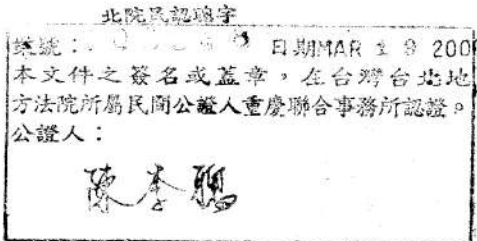 北院民認聰字
號號: 日期MAR 19 200
本文件之簽名或蓋章,在台灣台北地
方法院所屬民間公證人重慶聯合事務所認證。
公證人:
陳李聰